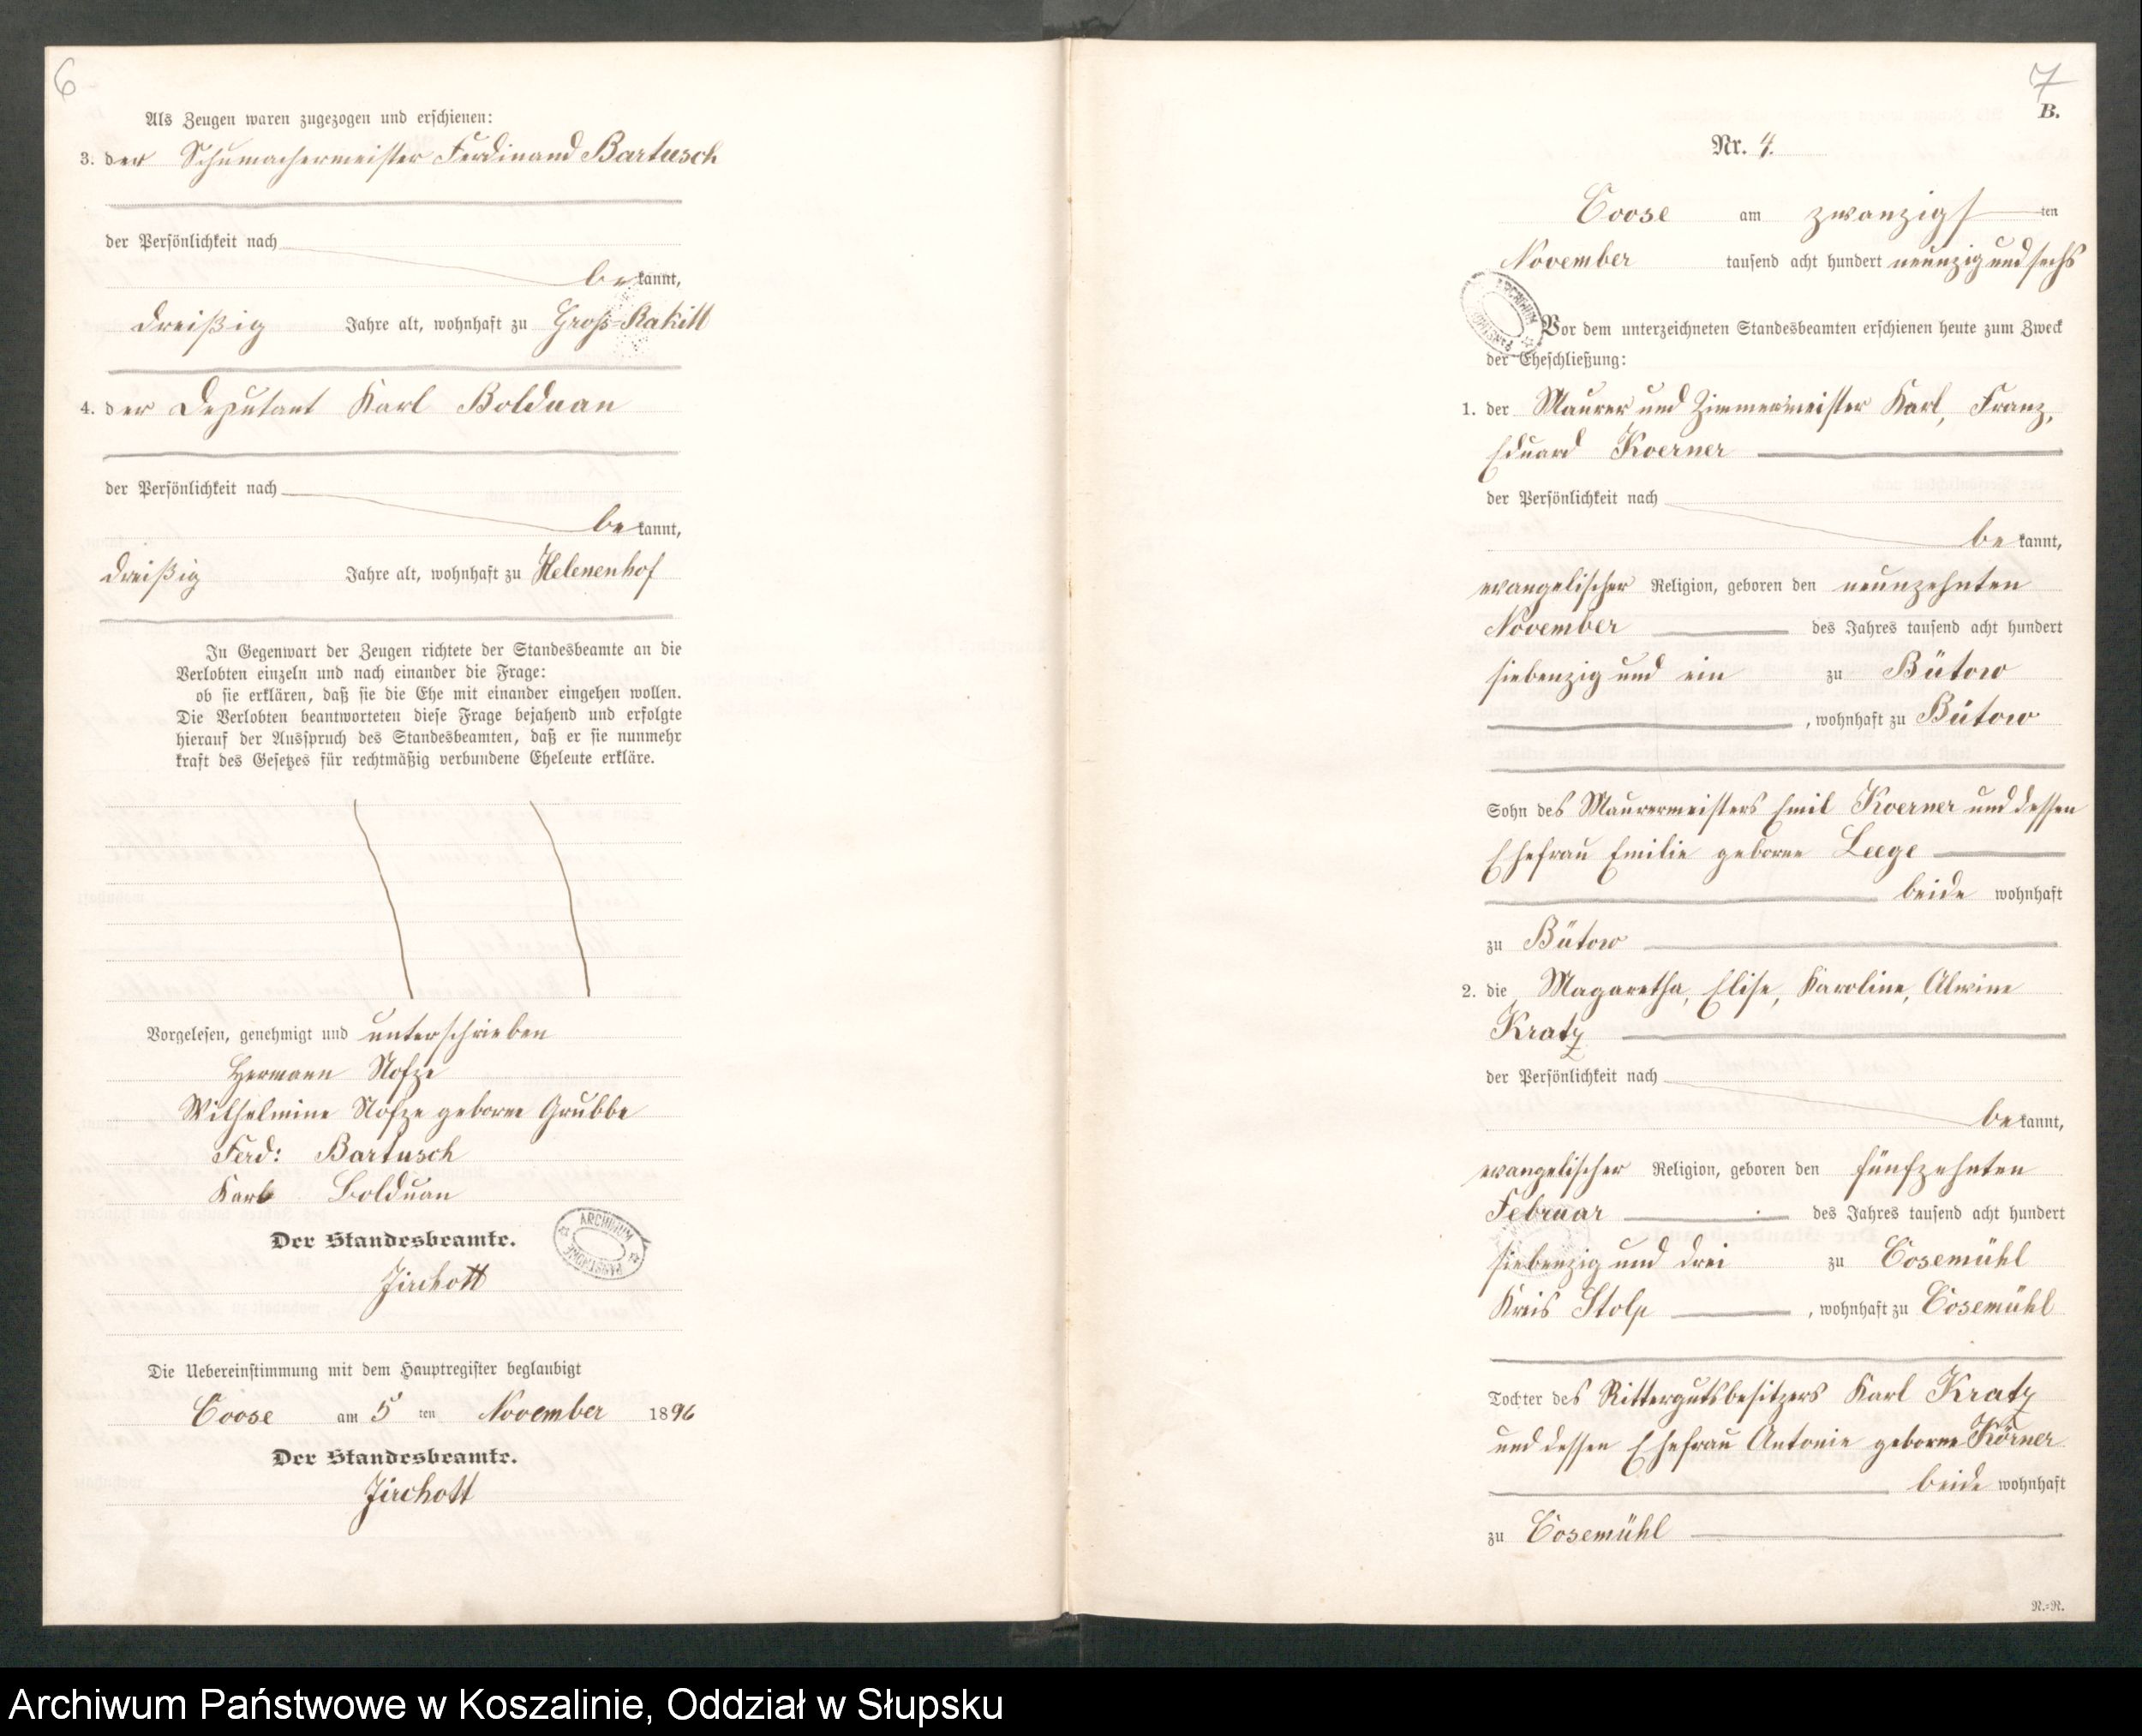 6
Als Zeugen waren zugezogen und erschienen:
3. der Schumachermeister Ferdinand Bartusch
der Persönlichkeit nach
bekannt,
dreißig Jahre alt, wohnhaft zu Groß-Rakitt
4. der Deputant Karl Bolduan
der Persönlichkeit nach
bekannt,
dreißig Jahre alt, wohnhaft zu Helenenhof
In Gegenwart der Zeugen richtete der Standesbeamte an die
Verlobten einzeln und nach einander die Frage:
ob sie erklären, daß sie die Ehe mit einander eingehen wollen.
Die Verlobten beantworteten diese Frage bejahend und erfolgte
hierauf der Ausspruch des Standesbeamten, daß er sie nunmehr
kraft des Gesetzes für rechtmäßig verbundene Eheleute erkläre.
Vorgelesen, genehmigt und unterschrieben
Hermann Nofze
Wilhelmine Nofze geborne Grubbe
Ferd: Bartusch
Karl Bolduan
Der Standesbeamte.
Jirchott
Die Uebereinstimmung mit dem Hauptregister beglaubigt
Coose am 5 ten November 1896
Der Standesbeamte.
Jirchott
7
B.
Nr. 4.
Coose am zwanzigsten
November tausend acht hundert neunzig und sechs
Vor dem unterzeichneten Standesbeamten erschienen heute zum Zweck
der Eheschließung:
1. der Maurer und Zimmermeister Karl, Franz,
Eduard Koerner
der Persönlichkeit nach
bekannt,
evangelischer Religion, geboren den neunzehnten
November des Jahres tausend acht hundert
siebenzig und ein zu Bütow
, wohnhaft zu Bütow
Sohn des Maurermeisters Emil Koerner und dessen
Ehefrau Emilie geborne Leege
beide wohnhaft
zu Bütow
2. die Magaretha, Elise, Karoline, Alwine
Kratz
der Persönlichkeit nach
bekannt,
evangelischer Religion, geboren den fünfzehnten
Februar des Jahres tausend acht hundert
siebenzig und drei zu Cosemühl
Kreis Stolp , wohnhaft zu Cosemühl
Tochter des Rittergutsbesitzers Karl Kratz
und dessen Ehefrau Antonie geborne Körner
beide wohnhaft
zu Cosemühl
R.=R.
Archiwum Państwowe w Koszalinie, Oddział w Słupsku